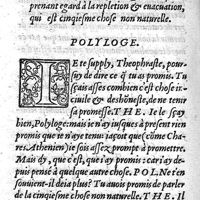 prenant egard à la repletion & euacuation,
qui est cinqiesme chose non naturelle.
POLYLOGE.
TE te supply, Theophraste, pour-
suy de dire ce q̃ tu as promis. Tu
sçais asses combien c'est chose in-
ciuile & deshõneste, de ne tenir
sa promesse. THE. Ie le sçay
bien, Polyloge: mais ie n'ay iusques à present rien
promis que ie n'aye tenu: iaçoit que (cõme Cha-
res Athenien) ie sois assez prompt à promettre.
Mais dy, que c'est, que i'ay promis: car i'ay de-
puis pensé à quelque autre chose. POL. Net'en
souuient-il deia plus? Tu auois promis de parler
de la cinqiesme chose non naturelle. THE. Il